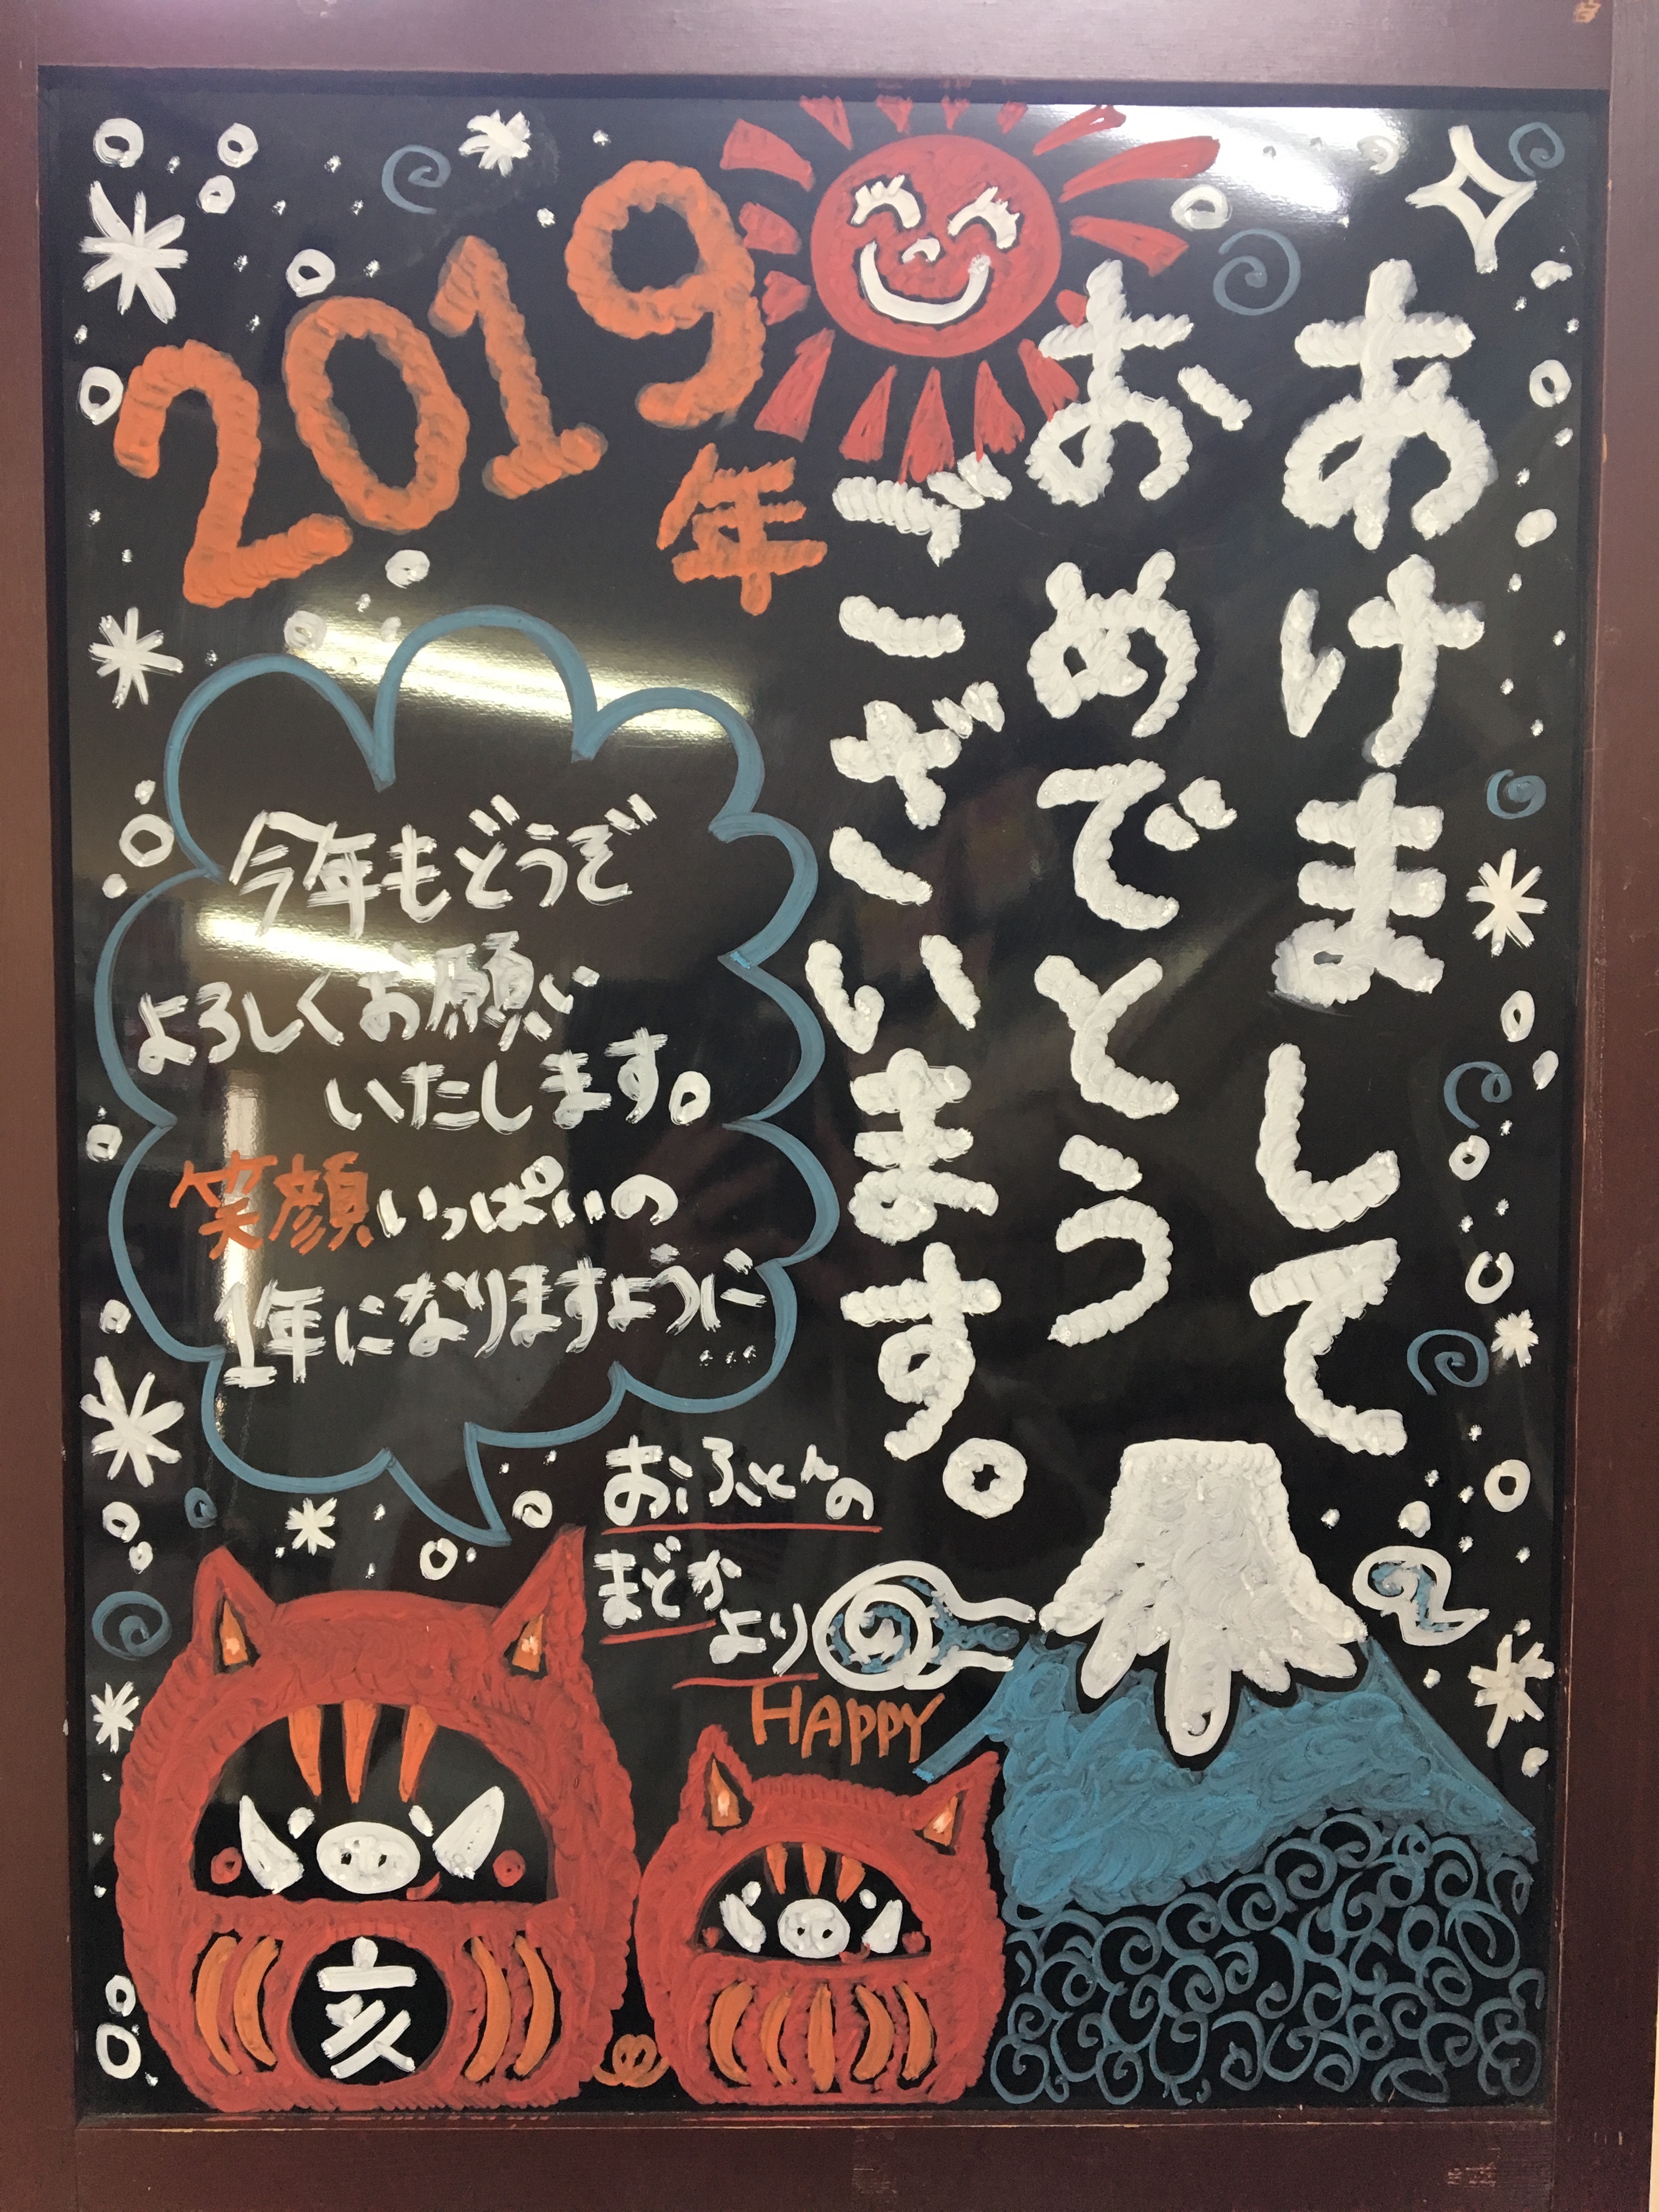 あけまして
おめでとう
ございます。
2019年
今年もどうぞ
よろしくお願い
いたします。
笑顔いっぱいの
1年になりますように…
おふとんの
まどか
より
HAPPY
亥